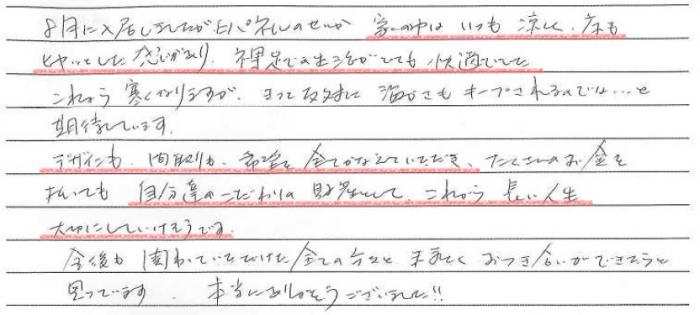 8月に入居しましたがEパネルのせいか 家の中は いつも 涼しく、床も
ヒヤッとした感じがあり、裸足での生活がとても 快適でした
これから 寒くなりますが、きっと反対に 温かさも キープされるのでは…と
期待しています。
デザインも、間取りも、希望を 全てかなえていただき、たくさんのお金を
払いても 自分達のこだわりの 財産として、これから 長い人生
大切にしていけそうです。
今後も 関わっていただけた 全ての方々と 末永く おつき合いができたらと
思っています 本当にありがとうございました!!